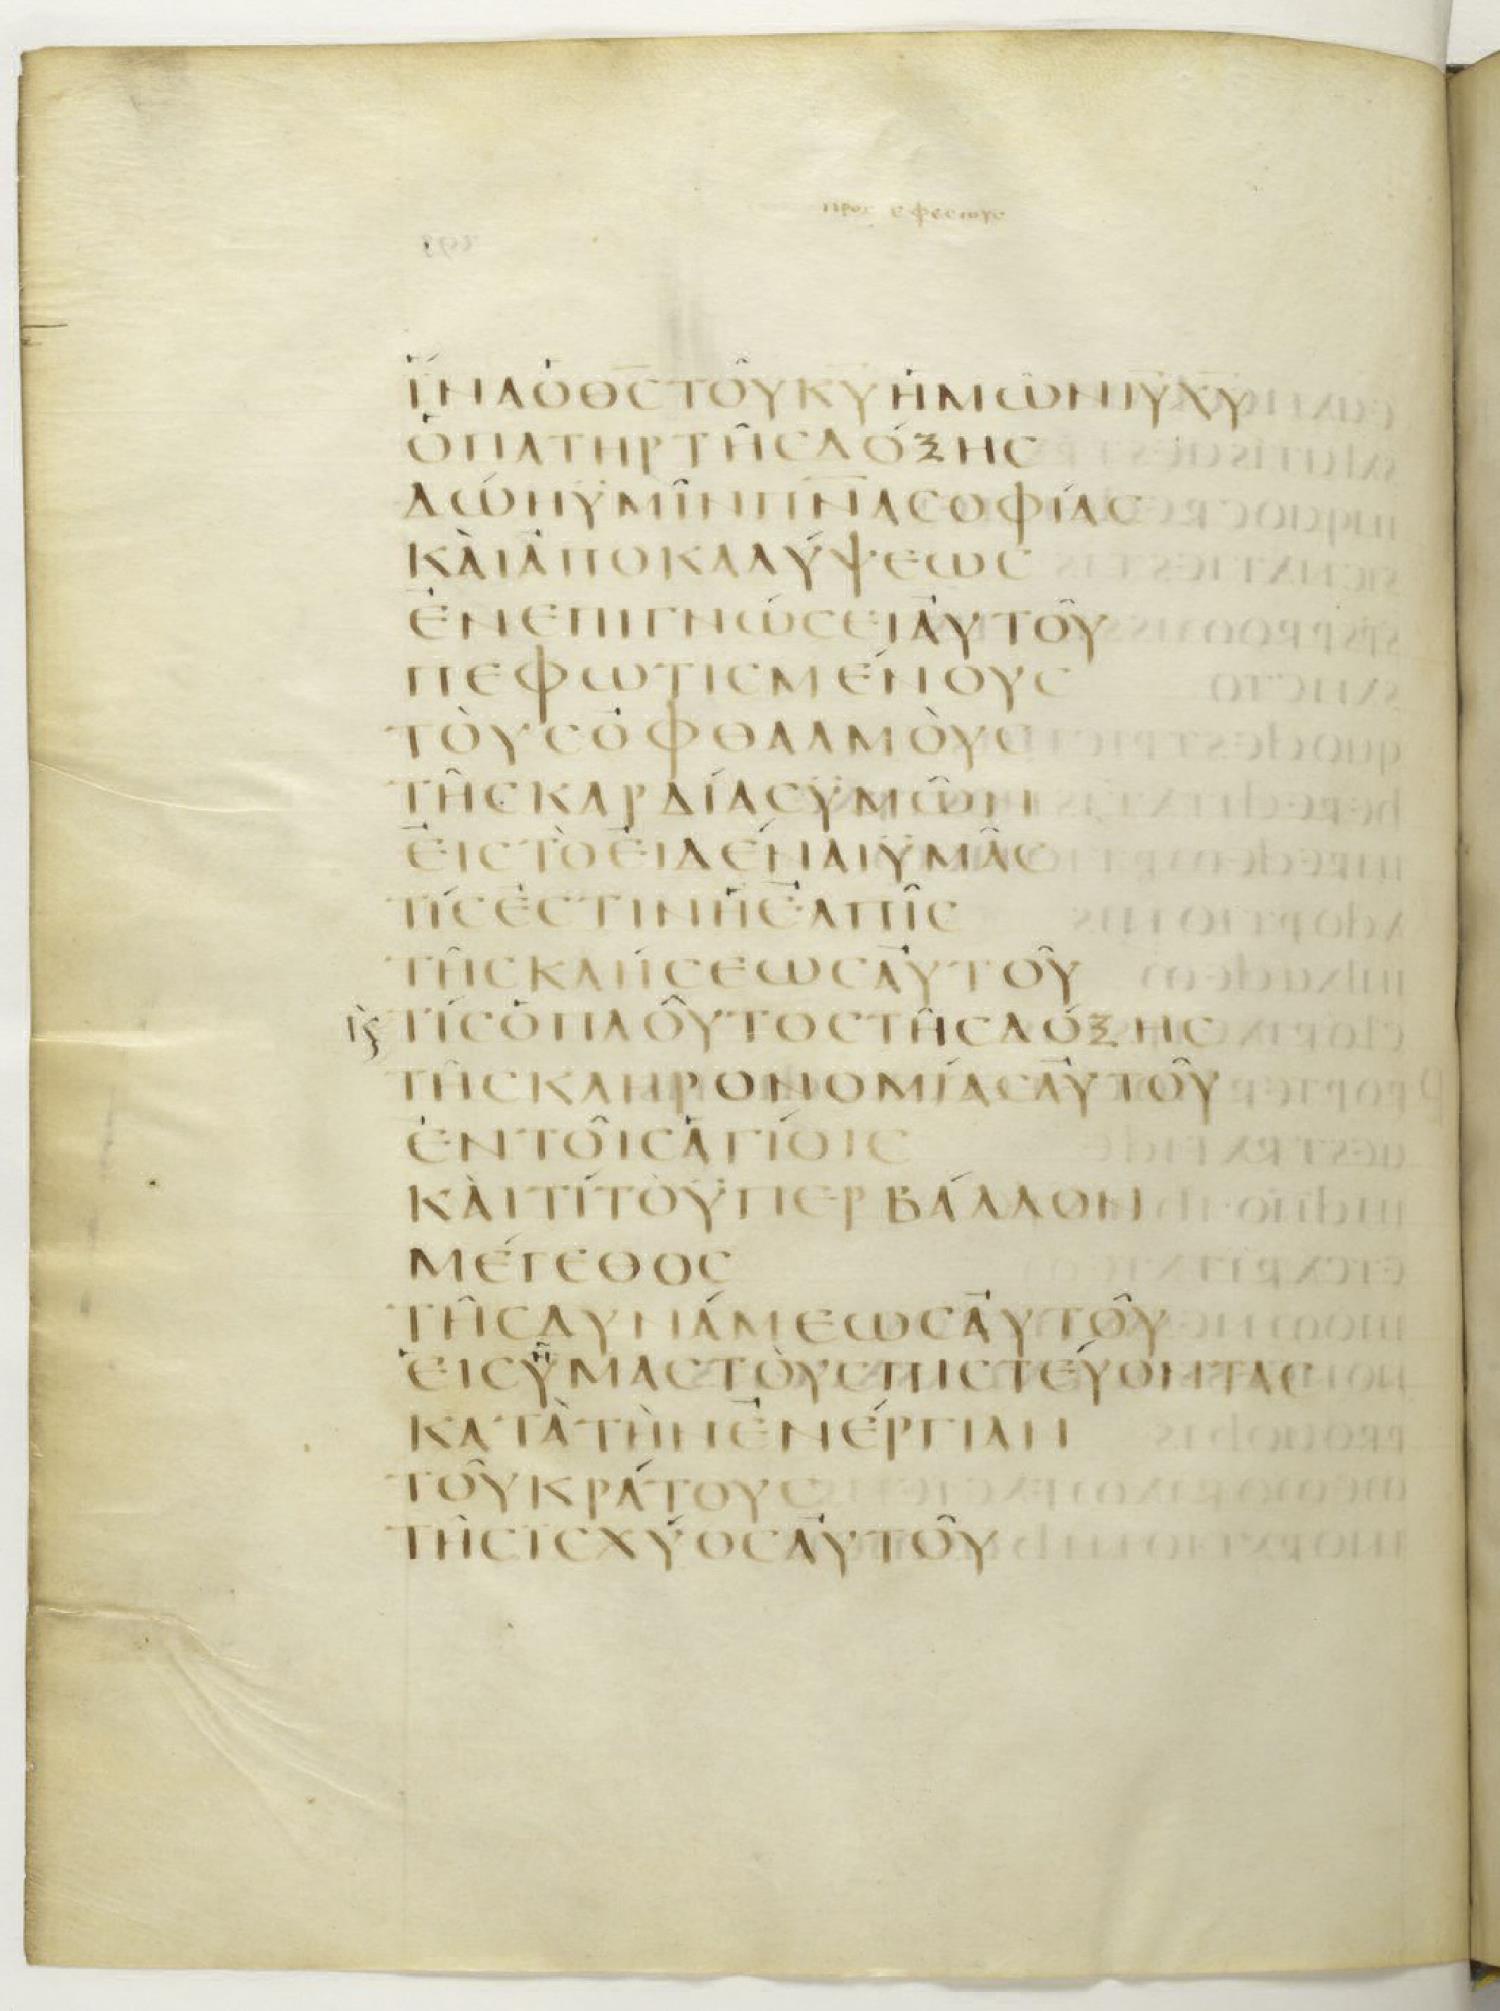 προς εφεσιους
ἵΝΑὁΘ̅Ϲ̅ΤΟῦΚ̅Υ̅ἡΜῶΝΙ̅Υ̅Χ̅Υ̅
ὁΠΑΤΗΡΤῆϹΔόΞΗϹ
ΔώΗϋΜῖΝΠ̅Ν̅Α̅ϹΟΦίΑϹ
ΚΑὶἀΠΟΚΑΛύΨΕΩϹ
ἐΝΕΠΙΓΝώϹΕΙἀΥΤΟῦ
ΠΕΦΩΤΙϹΜέΝΟΥϹ
ΤΟὺϹὀΦΘΑΛΜΟὺϹ
ΤῆϹΚΑΡΔίΑϹϋΜῶΝ
ἐΙϹΤὸἐΙΔέΝΑΙϋΜᾶϹ
ΤίϹἐϹΤΙΝἡἐΛΠῖϹ
ΤῆϹΚΛήϹΕΩϹἀΥΤΟῦ
ΤίϹὁΠΛΟῦΤΟϹΤῆϹΔόΞΗϹ
ΤῆϹΚΛΗΡΟΝΟΜίΑϹἀΥΤΟῦ
ἐΝΤΟῖϹἁΓίΟΙϹ
ΚΑὶΤίΤὸϋΠΕΡΒάΛΛΟΝ
ΜέΓΕΘΟϹ
ΤῆϹΔΥΝάΜΕΩϹἀΥΤΟῦ
ἐΙϹΥΜΑϹΤΟὺϹΠΙϹΤΕύΟΝΤΑϹ
ΚΑΤὰΤὴΝἐΝέΡΓΙΑΝ
ΤΟῦΚΡάΤΟΥϹ
ΤῆϹΙϹΧύΟϹἀΥΤΟῦ